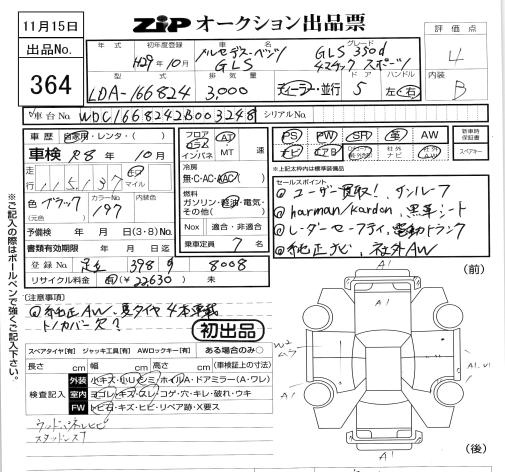 11月15日
ZIP オークション出品票
評価点
4
内装
B
出品No.
364
年式
初年度登録
H29年10月
車名
メルセデス・ベンツ
GLS
グレード
GLS 350d
4マチック スポーツ
型式
LDA-166824
排気量
3,000
ディーラー・並行
ドア
5
ハンドル
左・右
車台No.
WDC1668242B003248
シリアルNo.
車歴
自家用・レンタ・( )
車検 R8年10月
走行
115,137
キロ
マイル
色 ブラック
(元色)
カラーNo.
197
内装色
予備検 年 月 日(3・8)No.
書類有効期限 年 月 日迄
登録No. 足立 398 8008
リサイクル料金 有(¥22630) 未
フロア
コラム
インパネ
AT
MT
速
冷房
無・C・AC・WAC
燃料
ガソリン・軽油・電気・
その他( )
Nox 適合・非適合
乗車定員 7 名
PS
PW
SR
革
AW
ナビ
エアB
社外
ナビ
社外
AW
新車時
保証書
スペアキー
※上記太枠内は標準装備品
セールスポイント
ユーザー買取!、サンルーフ
harman/kardon、黒革シート
レーダーセーフティ、電動トランク
純正ナビ、社外AW
(注意事項)
純正AW、夏タイヤ4本車載
トノカバー欠?
初出品
スペアタイヤ【有】 ジャッキ工具【有】 AWロックキー【有】 ある場合のみ〇
長さ cm 幅 cm 高さ cm (車検証上の寸法)
検査記入
外装 小キズ・小凹・シミ・ホイル・ドアミラー(A・ワレ)
室内 ヨゴレ・キズ・スレ・コゲ・穴・キレ・破れ・ウキ
FW トビ石・キズ・ヒビ・リペア跡・X要ス
ウッドパネルヒビ
スタッドレス
※ご記入の際はボールペンで強くご記入下さい。
(前)
A1
A1
W2
ムラ
A1
A1
(後)